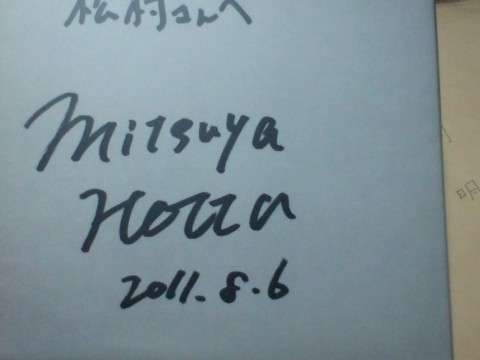 松村さんへ
Mitsuya
Hotta
2011.8.6
明